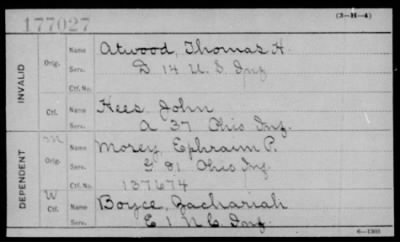 177027
(3-H-4)
INVALID
Orig.
Name Atwood, Thomas H.
Serv. D 14 U.S. Inf.
Ctf. No.
Ctf.
Name Hees John
Serv. A 37 Ohio Inf.
DEPENDENT
M
Orig.
Name Morey Ephraim P.
Serv. G 91 Ohio Inf.
Ctf. No. 137674
W
Ctf.
Name Boyce, Zachariah
Serv. E 1 N.C. Inf.
6-1301